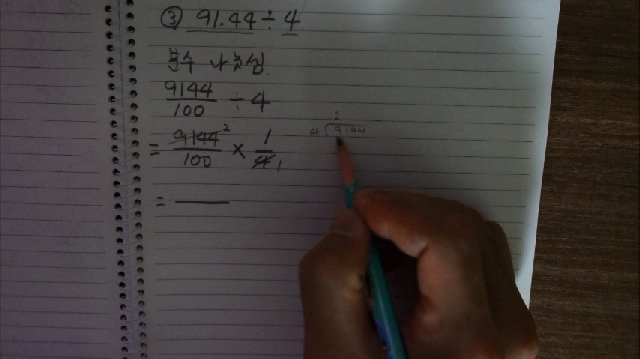 ③ 91.44 ÷ 4
분수 나눗셈
9144/100 ÷ 4
= 9144 2/100 × 1/4 1
4 9144
=